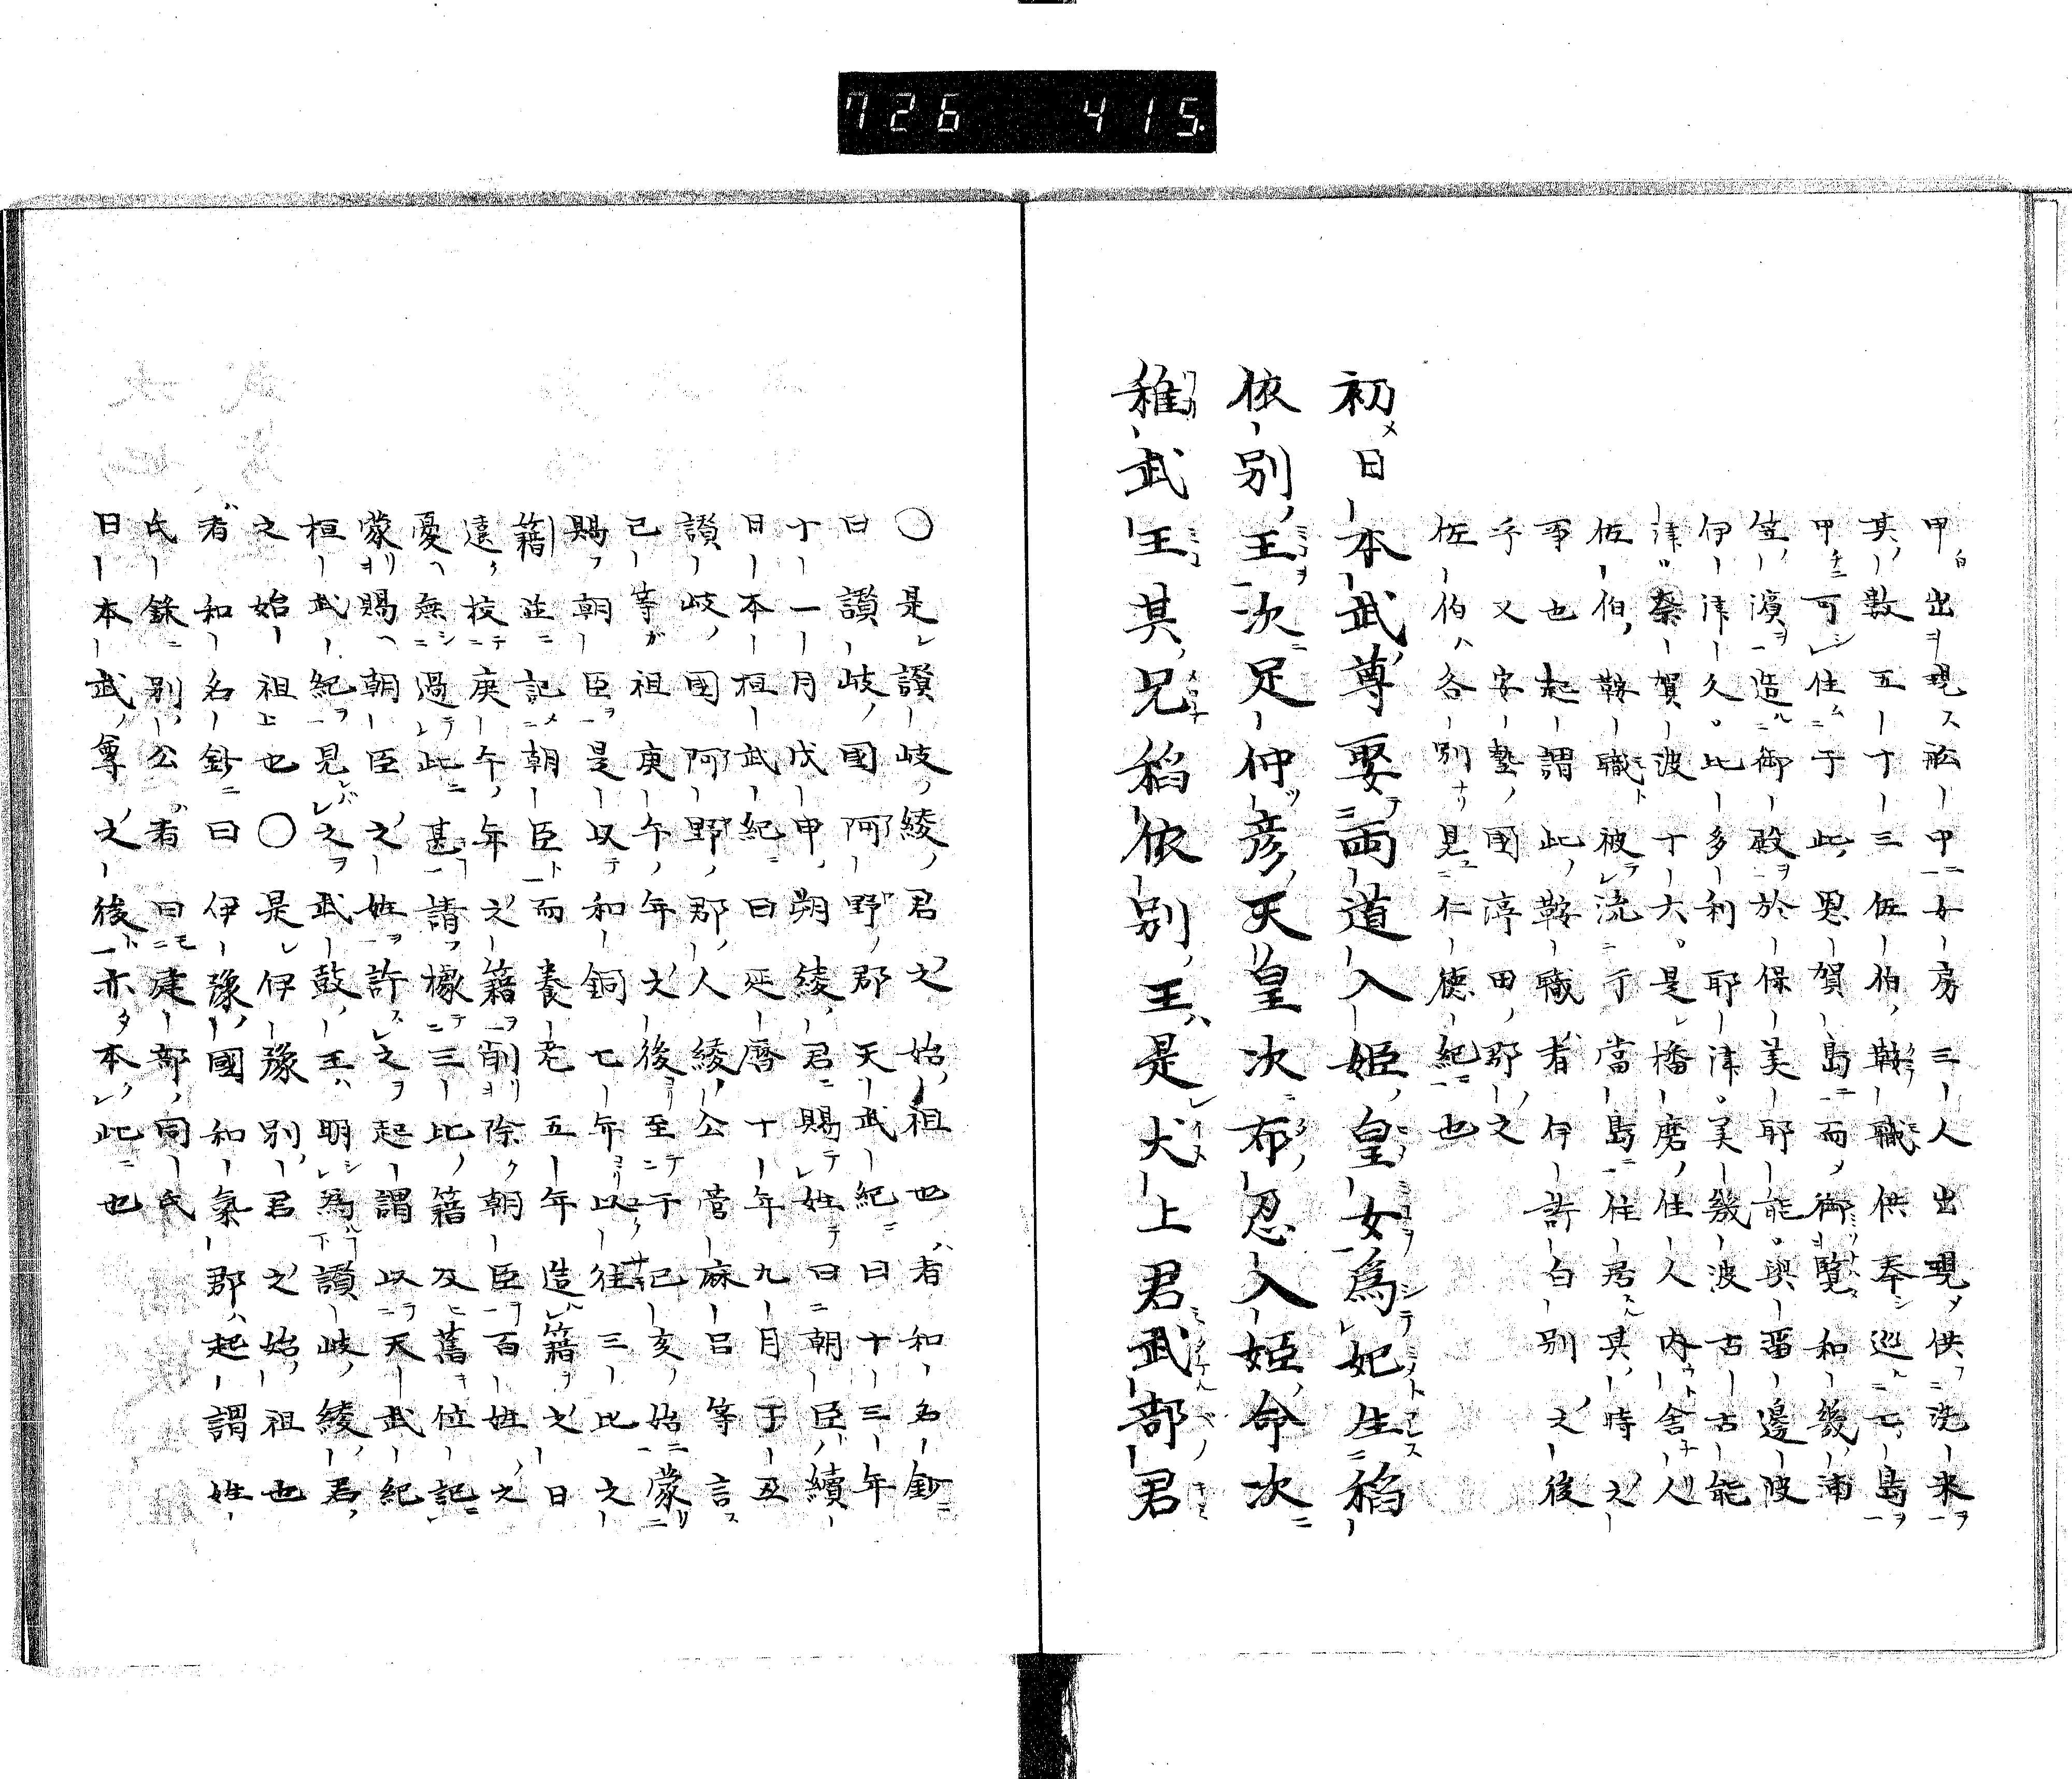 726 415.
甲出現舩中二女房三人出現供洗来
其数五十三佐伯鞍職供奉巡七島
甲可住于此恩賀島而御覽和幾浦
笠濱造御殿於保美耶能與畱邊波
伊津久比多利耶津美幾波古古能
津秦賀波十六是播磨住人内舎人
佐伯鞍職被流于當島住居其時之
事也起謂此鞍職者伊許白別之後
乎又安藝國渟田郡之
佐伯各別見仁德紀也
初日本武尊娶両道入姫皇女爲妃生稻
依別王次足仲彦天皇次布忍入姫命次
稚武王其兄稻依別王是犬上君武部君
○是讃岐綾君之始祖也者和名鈔
曰讃岐國阿野郡天武紀曰十三年
十一月戊申朔綾君賜姓曰朝臣續
日本桓武紀曰延暦十年九月丁丑
讃岐國阿野郡人綾公菅麻呂等言
己等祖庚午年之後至于己亥始蒙
賜朝臣是以和銅七年以往三比之
籍並記朝臣而養老五年造籍之日
遠校庚午年之籍削除朝臣百姓之
憂無過此甚請據三比籍及舊位記
蒙賜朝臣之姓許之起謂以天武紀
桓武紀見之武鼓王明爲讃岐綾君
之始祖也○是伊豫別君之始祖也
者和名鈔曰伊豫國和氣郡起謂姓
氏錄別公者曰建部同氏
日本武尊之後亦本此也